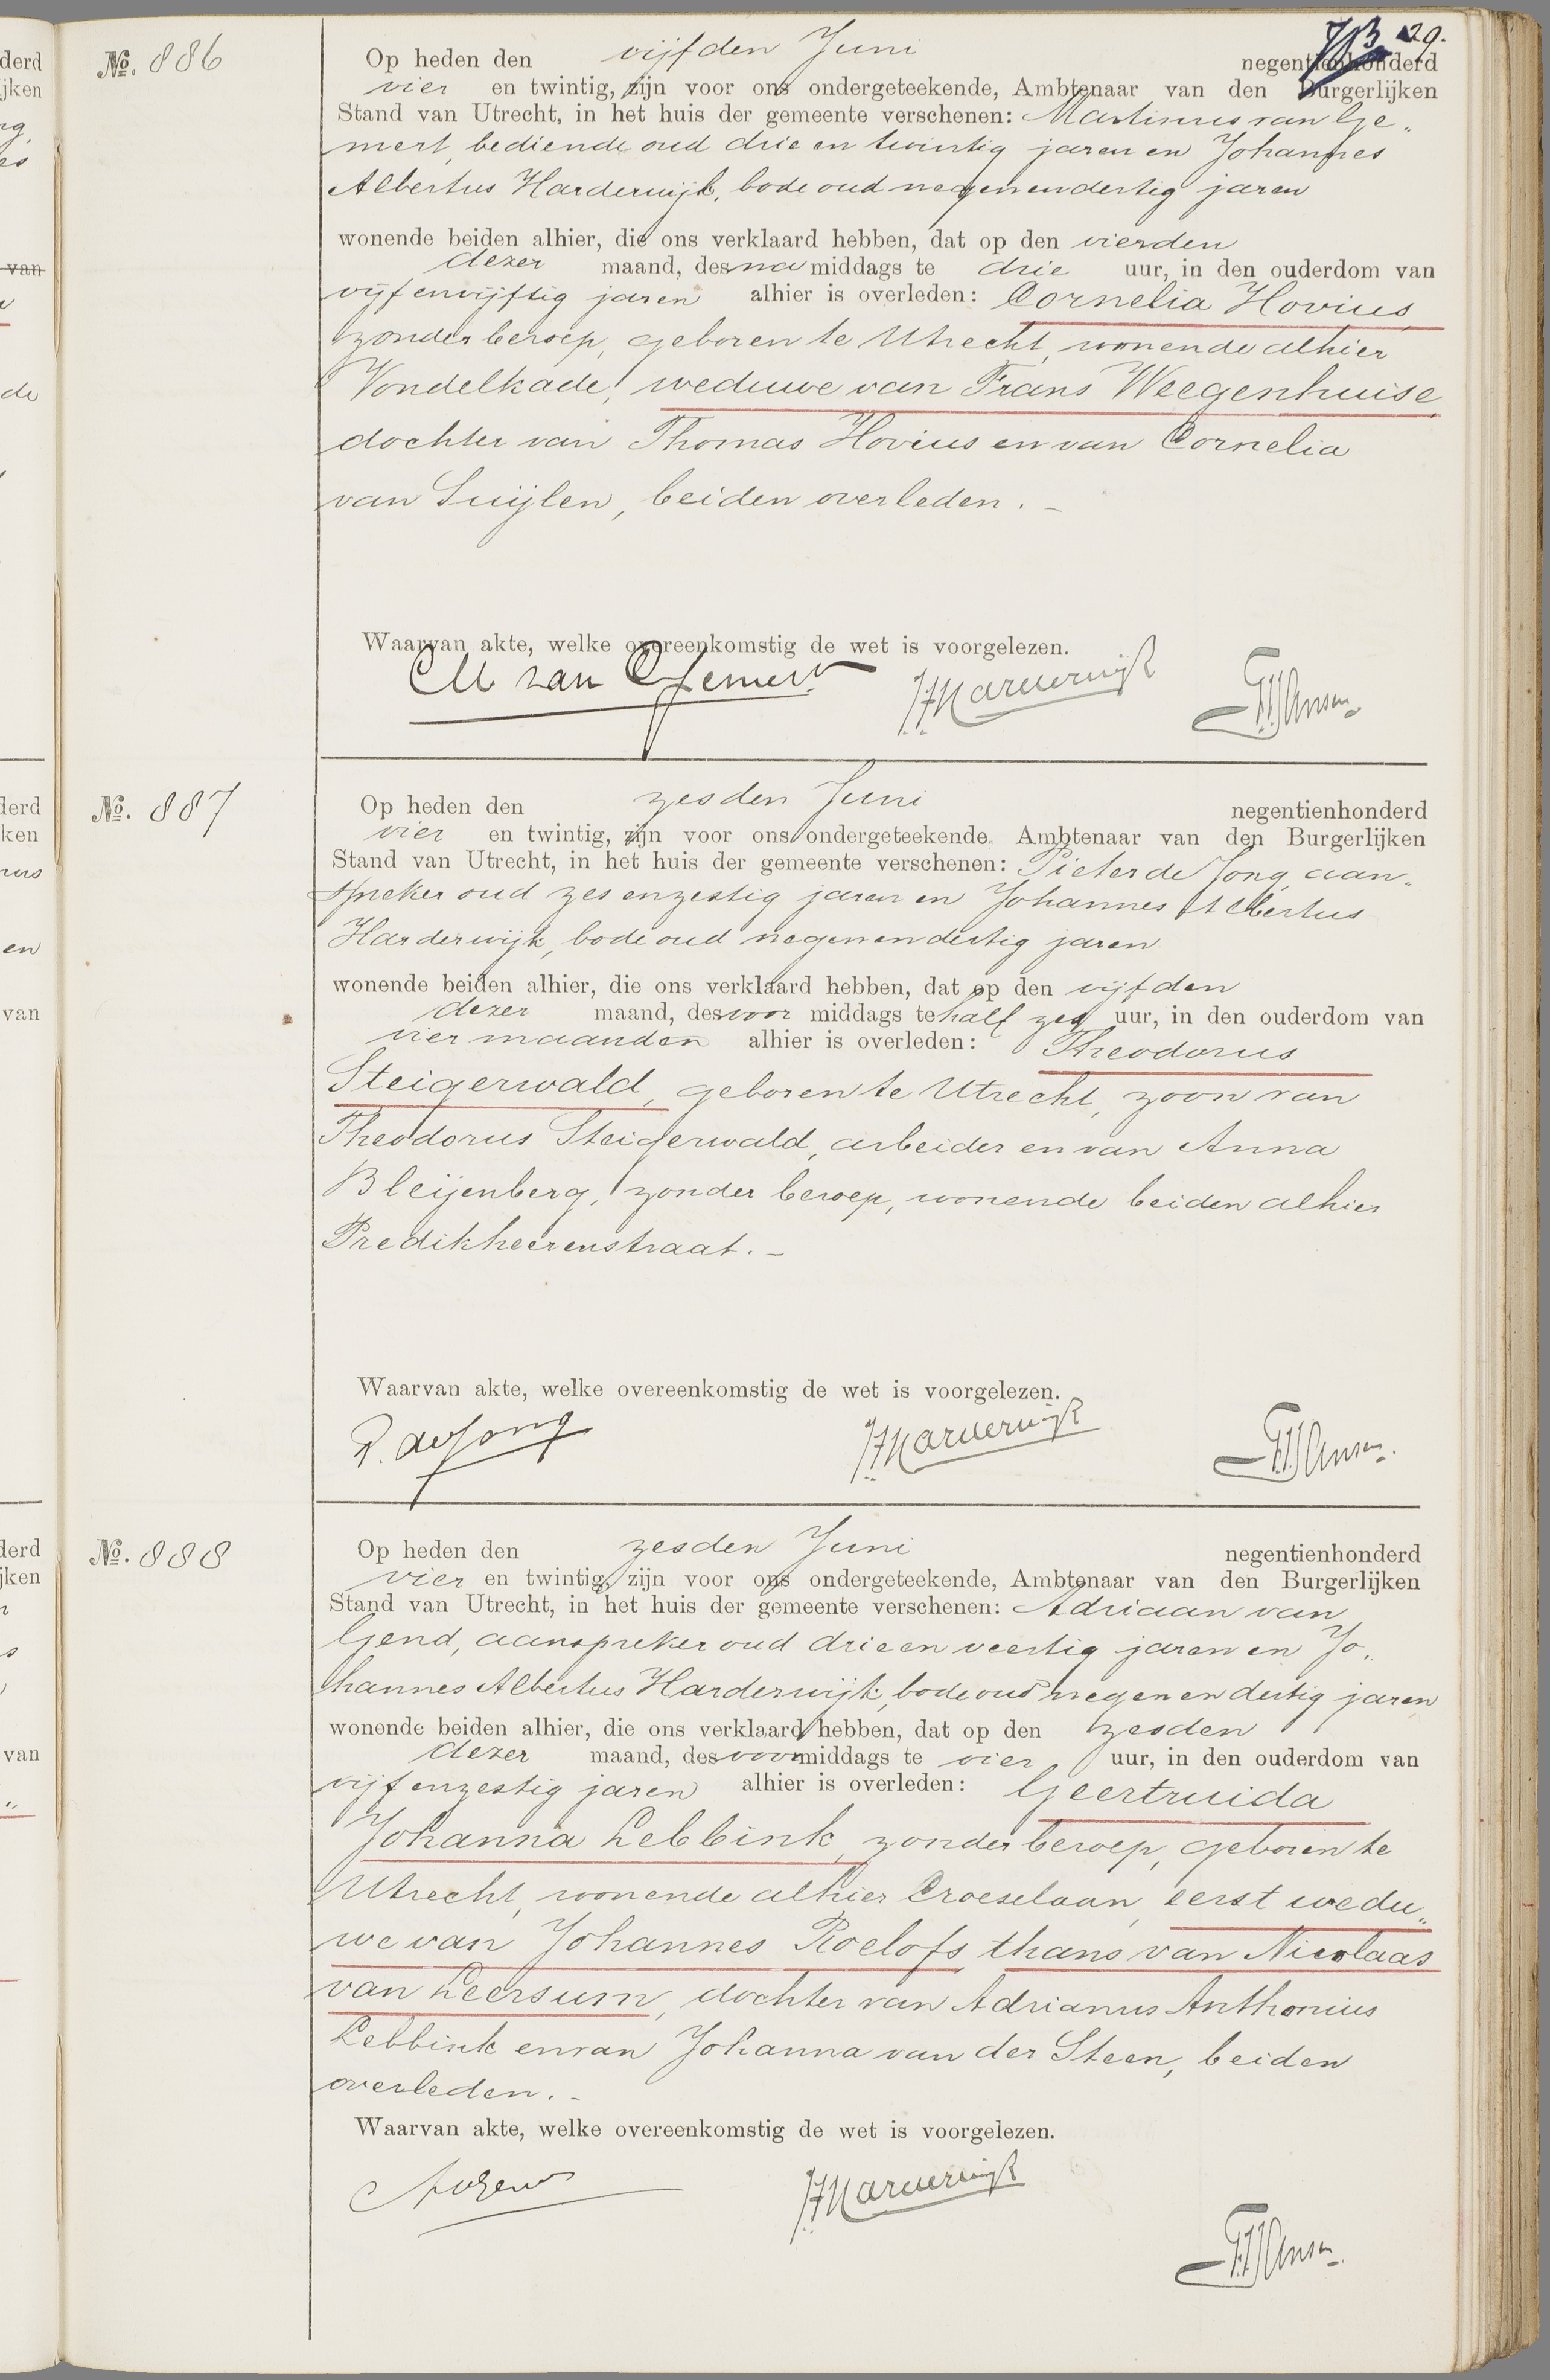 29.
No. 886
Op heden den vijfden Juni negentienhonderd
vier en twintig, zijn voor ons ondergeteekende, Ambtenaar van den Burgerlijken
Stand van Utrecht, in het huis der gemeente verschenen: Martinus van Ge„
mert, bediende oud drie en twintig jaren en Johannes
Albertus Harderwijk, bode oud negenendertig jaren
wonende beiden alhier, die ons verklaard hebben, dat op den vierden
dezer maand, des na middags te drie uur, in den ouderdom van
vijfenvijftig jaren alhier is overleden: Cornelia Hovius,
zonder beroep, geboren te Utrecht, wonende alhier
Vondelkade, weduwe van Frans Weegenhuise,
dochter van Thomas Hovius en van Cornelia
van Suijlen, beiden overleden. –
Waarvan akte, welke overeenkomstig de wet is voorgelezen.
M van Gemert JAHarderwijk
No. 887
Op heden den zesden Juni negentienhonderd
vier en twintig, zijn voor ons ondergeteekende. Ambtenaar van den Burgerlijken
Stand van Utrecht, in het huis der gemeente verschenen: Pieter de Jong, aan„
spreker oud zesenzestig jaren en Johannes Albertus
Harderwijk, bode oud negenendertig jaren
wonende beiden alhier, die ons verklaard hebben, dat op den vijfden
dezer maand, des voor middags te half zes uur, in den ouderdom van
vier maanden alhier is overleden: Theodorus
Steigerwald, geboren te Utrecht, zoon van
Theodorus Steigerwald, arbeider en van Anna
Bleijenberg, zonder beroep, wonende beiden alhier
Predikheerenstraat. –
Waarvan akte, welke overeenkomstig de wet is voorgelezen.
P. de Jong JAHarderwijk
No. 888
Op heden den zesden Juni negentienhonderd
vier en twintig, zijn voor ons ondergeteekende, Ambtenaar van den Burgerlijken
Stand van Utrecht, in het huis der gemeente verschenen: Adriaan van
Gend, aanspreker oud drieenveertig jaren en Jo„
hannes Albertus Harderwijk, bode oud negenendertig jaren
wonende beiden alhier, die ons verklaard hebben, dat op den zesden
dezer maand, des voormiddags te vier uur, in den ouderdom van
vijfenzestig jaren alhier is overleden: Geertruida
Johanna Lebbink, zonder beroep, geboren te
Utrecht, wonende alhier Croeselaan, eerst wedu„
we van Johannes Roelofs, thans van Nicolaas
van Leersum, dochter van Adrianus Anthonius
Lebbink en van Johanna van der Steen, beiden
overleden. –
Waarvan akte, welke overeenkomstig de wet is voorgelezen.
JAHarderwijk